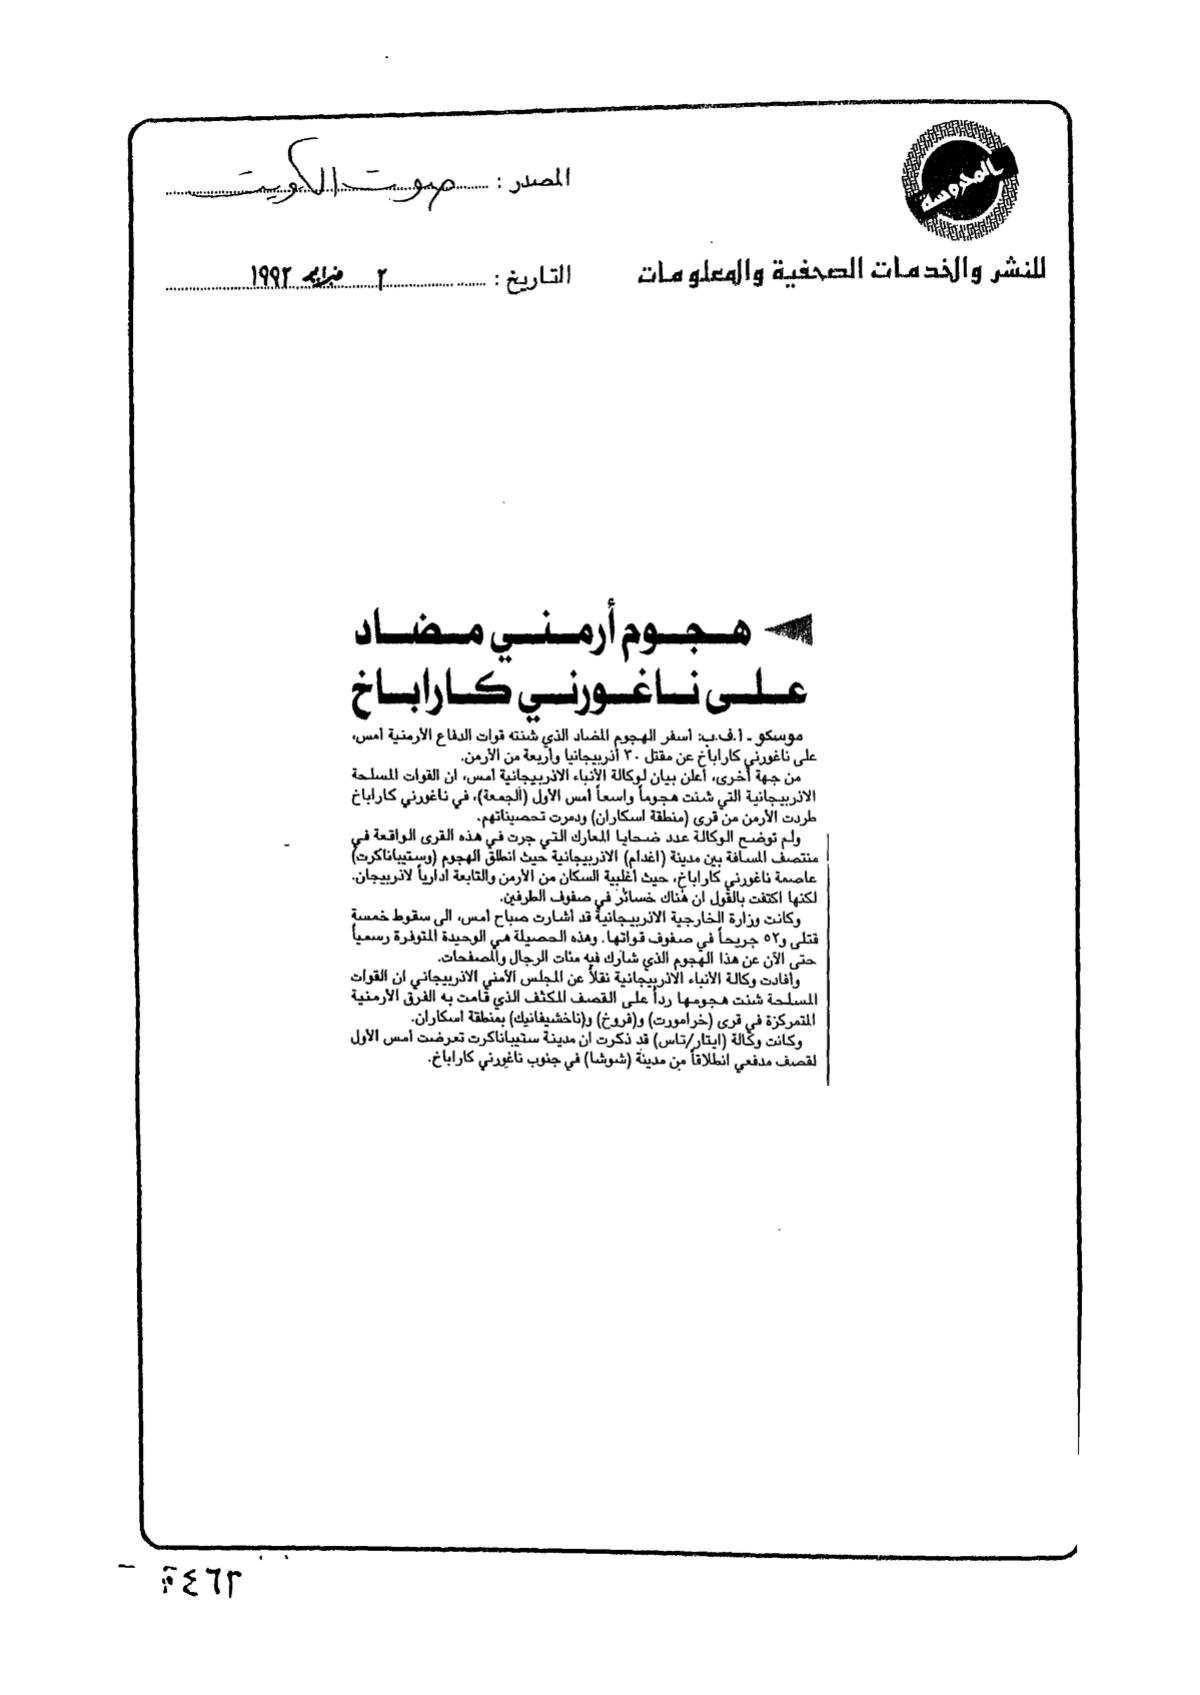 المحروسة
المصدر : صوت الكويت
للنشر والخدمات الصحفية والمعلومات
التاريخ : ٢ فبراير ١٩٩٢
هجوم أرمني مضاد
على ناغورني كاراباخ
موسكو ـ أ.ف.ب: أسفر الهجوم المضاد الذي شنته قوات الدفاع الأرمنية أمس،
على ناغورني كاراباخ عن مقتل ٣٠ أذربيجانيا وأربعة من الأرمن.
من جهة أخرى، أعلن بيان لوكالة الأنباء الاذربيجانية أمس، ان القوات المسلحة
الاذربيجانية التي شنت هجوماً واسعاً امس الأول (الجمعة)، في ناغورني كاراباخ
طردت الأرمن من قرى (منطقة اسكاران) ودمرت تحصيناتهم.
ولم توضح الوكالة عدد ضحايا المعارك التي جرت في هذه القرى الواقعة في
منتصف المسافة بين مدينة (اغدام) الاذربيجانية حيث انطلق الهجوم (وستيباناكرت)
عاصمة ناغورني كاراباخ، حيث أغلبية السكان من الأرمن والتابعة ادارياً لاذربيجان.
لكنها اكتفت بالقول ان هناك خسائر في صفوف الطرفين.
وكانت وزارة الخارجية الاذربيجانية قد أشارت صباح أمس، الى سقوط خمسة
قتلى و٥٢ جريحاً في صفوف قواتها. وهذه الحصيلة هي الوحيدة المتوفرة رسمياً
حتى الآن عن هذا الهجوم الذي شارك فيه مئات الرجال والمصفحات.
وأفادت وكالة الانباء الاذربيجانية نقلاً عن المجلس الأمني الاذربيجاني ان القوات
المسلحة شنت هجومها رداً على القصف المكثف الذي قامت به الفرق الأرمنية
المتمركزة في قرى (خرامورت) و(فروخ) و(ناخشيفانيك) بمنطقة اسكاران.
وكانت وكالة (ايتار/تاس) قد ذكرت ان مدينة ستيباناكرت تعرضت أمس الأول
لقصف مدفعي انطلاقاً من مدينة (شوشا) في جنوب ناغورني كاراباخ.